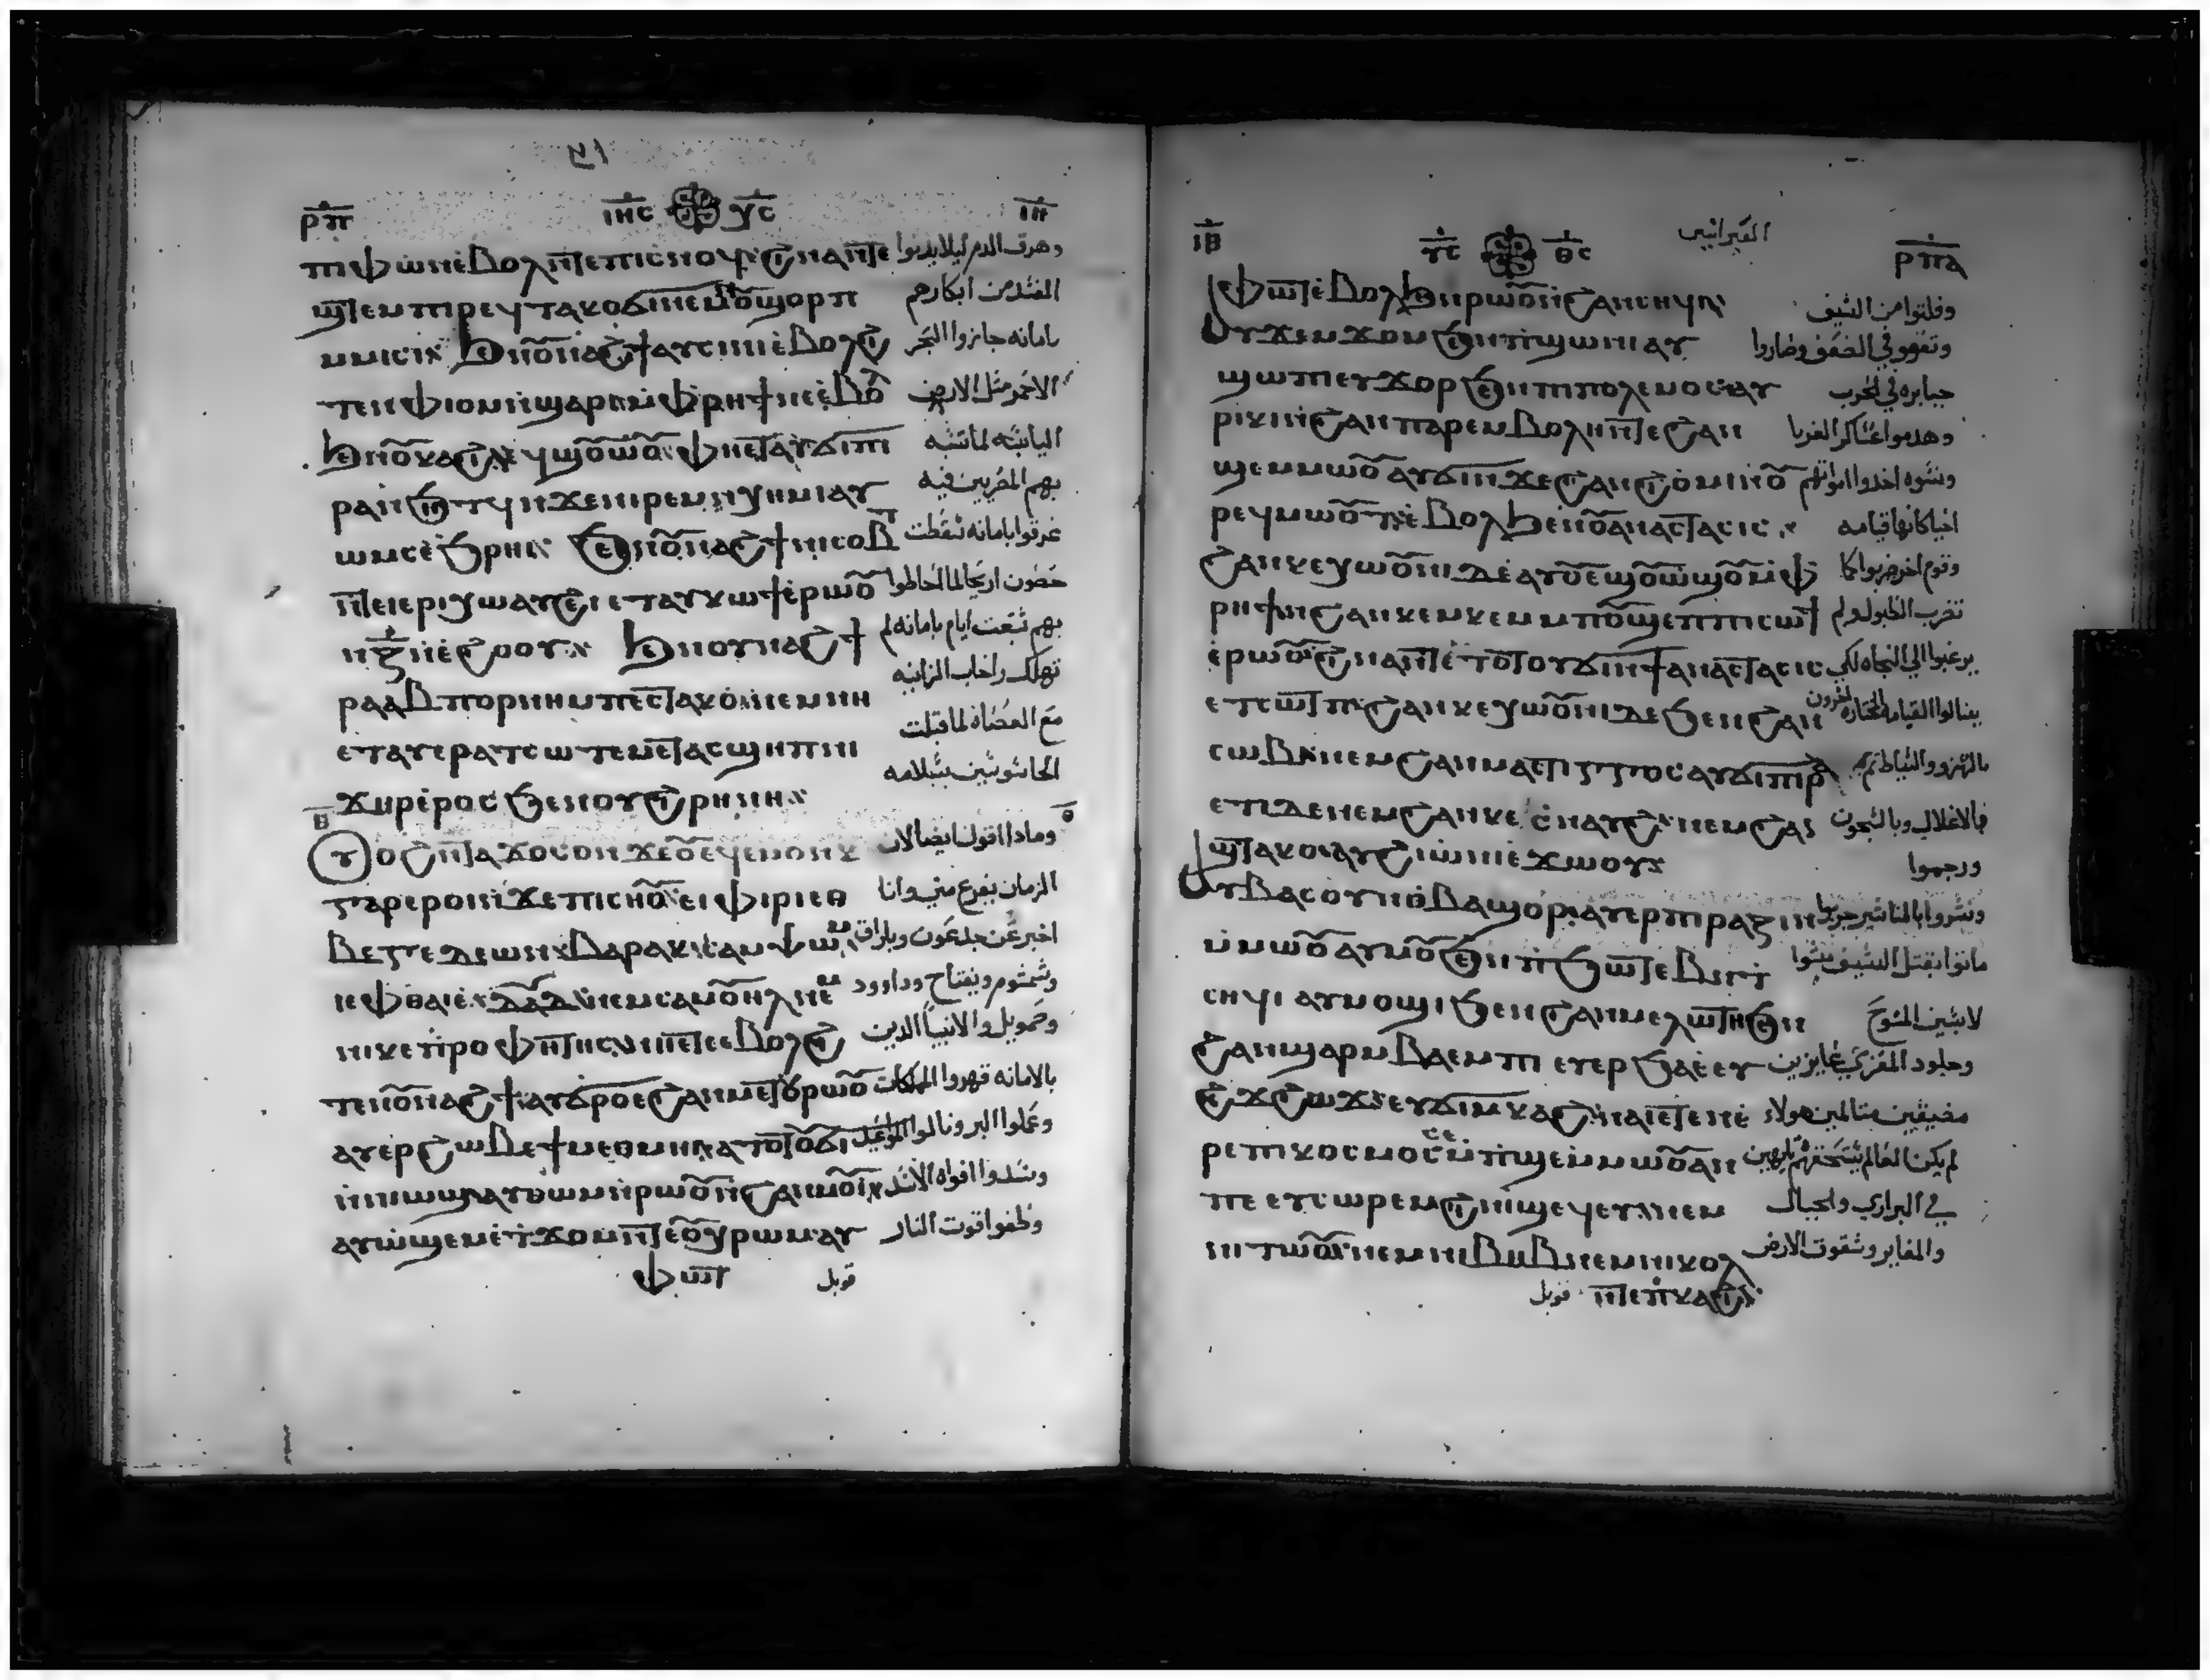 ⲣⲡ ⲓⲏⲥ ⲩⲥ
ⲡⲓⲫⲱⲛ ⲉⲃⲟⲗ ⲛⲧⲉ ⲡⲓⲥⲛⲟϥ ϩⲓⲛⲁ ⲛⲧⲉ وهرق الدم ليلا يدنوا
ϣⲧⲉⲙ ⲡⲓⲣⲉϥⲧⲁⲕⲟ ϭⲓ ⲛⲉⲙ ⲟⲩϣⲟⲣⲡ المفسد من ابكارهم
ⲙⲙⲓⲥⲓ ϧⲉⲛ ⲟⲩⲛⲁϩϯ ⲁⲩⲥⲓⲛⲓ ⲉⲃⲟⲗ ϩⲓ بامانه جازوا البحر
ⲧⲉⲛ ⲫⲓⲟⲙ ⲛϣⲁⲣⲓ ⲙⲫⲣⲏϯ ⲛⲉⲃⲟⲗ الاحمر مثل الارض
ϧⲉⲛ ⲟⲩⲕⲁϩⲓ ⲉϥϣⲟⲩⲱⲟⲩ ⲫⲏ ⲉⲧⲁⲩϭⲓ ⲡⲓ اليابسه لما تشبه
ⲣⲁ ⲛϧⲏⲧϥ ⲛϫⲉ ⲛⲓⲣⲉⲙⲛⲭⲏⲙⲓ ⲁⲩ بهم المصريين فيه
ⲱⲙⲥ ⲉϧⲣⲏⲓ ϧⲉⲛ ⲟⲩⲛⲁϩϯ ⲛⲓⲥⲟⲃⲧ غرقوا بامانه سقطت
ⲛⲧⲉ ⲓⲉⲣⲓⲭⲱ ⲁⲩϩⲉⲓ ⲉⲧⲁⲩⲕⲱϯ ⲉⲣⲱⲟⲩ حصون اريحا لما احاطوا
ⲛⲍ ⲛⲉϩⲟⲟⲩ ϧⲉⲛ ⲟⲩⲛⲁϩϯ بهم سبعت ايام بامانه لم
ⲣⲁⲁⲃ ϯⲡⲟⲣⲛⲏ ⲙⲡⲉⲥⲧⲁⲕⲟ ⲛⲉⲙ ⲛⲏ تهلك راحاب الزانيه
ⲉⲧⲁⲩⲉⲣⲁⲧⲥⲱⲧⲉⲙ ⲉⲧⲁⲥϣⲉⲡ ⲛⲓ مع العصاه لما قبلت
ϫⲏⲣ ⲉⲣⲟⲥ ϧⲉⲛ ⲟⲩϩⲓⲣⲏⲛⲏ الجاسوسين بسلامه
ⲟⲩⲟϩ ⲛⲧⲁϫⲟⲥ ⲟⲛ ϫⲉ ⲟⲩ ⲉϥⲉⲙⲟⲩⲛⲕ وماذا اقول ايضا لان
ⲅⲁⲣ ⲉⲣⲟⲓ ⲛϫⲉ ⲡⲓⲥⲏⲟⲩ ⲉⲓⲫⲓⲣⲓ ⲉⲑ الزمان يفرغ مني وانا
ⲃⲉ ⲅⲉⲇⲉⲱⲛ ⲃⲁⲣⲁⲕ ⲥⲁⲙⲯⲱⲛ اخبر عن جدعون وباراق
ⲓⲉⲫⲑⲁⲓⲉ ⲇⲁⲇ ⲛⲉⲙ ⲥⲁⲙⲟⲩⲏⲗ ⲛⲉⲙ وشمشوم ويفتاح وداوود
ⲛⲓⲕⲉⲡⲣⲟⲫⲏⲧⲏⲥ ⲛⲏ ⲉⲧⲉ ⲉⲃⲟⲗ ϩⲓ وصمويل والانبيا الذين
ⲧⲉⲛ ⲟⲩⲛⲁϩϯ ⲁⲩϭⲣⲟ ⲉϩⲁⲛⲙⲉⲧⲟⲩⲣⲱⲟⲩ بالامانه قهروا الملكات
ⲁⲩⲉⲣϩⲱⲃ ⲉϯⲙⲉⲑⲙⲏⲓ ⲁⲧⲟⲧⲟⲩ ϭⲓ وعملوا البر ونالوا المواعيد
ⲛⲛⲓⲱϣ ⲁⲩⲑⲱⲙ ⲛⲣⲱⲟⲩ ⲛϩⲁⲛⲙⲟⲩⲓ وسدوا افواه الاسد
ⲁⲩⲱϣⲉⲙ ⲛⲧϫⲟⲙ ⲛⲧⲉ ⲟⲩⲭⲣⲱⲙ ⲁⲩ وطفوا قوت النار
ⲫⲱⲧ قوبل
ⲓⲃ ⲩⲥ ⲑⲥ العبرانيين ⲣⲡⲁ
ⲫⲱⲧ ⲉⲃⲟⲗ ϧⲉⲛ ⲣⲱⲟⲩ ⲛϩⲁⲛⲥⲏϥⲓ وفلتوا من السيف
ⲟⲩϫⲉⲙϫⲟⲙ ϧⲉⲛ ⲡϣⲱⲛⲓ ⲁⲩ وتقووا في الضعف وصاروا
ϣⲱⲡⲓ ⲉⲩϫⲟⲣ ϧⲉⲛ ⲡⲡⲟⲗⲉⲙⲟⲥ ⲁⲩ جبابره في الحرب
ⲣⲓⲕⲓ ⲛϩⲁⲛⲡⲁⲣⲉⲙⲃⲟⲗⲏ ⲛⲧⲉ ϩⲁⲛ وهدموا عساكر الغربا
ϣⲉⲙⲙⲱⲟⲩ ⲁⲩϭⲓ ⲛϫⲉ ϩⲁⲛϩⲓⲟⲙⲓ ⲛⲟⲩ ونسوه اخدوا امواتهم
ⲣⲉϥⲙⲱⲟⲩⲧ ⲉⲃⲟⲗ ϧⲉⲛ ⲟⲩⲁⲛⲁⲥⲧⲁⲥⲓⲥ احيا كانها قيامه
ϩⲁⲛⲕⲉⲭⲱⲟⲩⲛⲓ ⲇⲉ ⲁⲩⲟⲩⲉϣⲟⲩⲱϣⲟⲩ ⲙⲫ وقوم اخر ضربوا كما
ⲣⲏϯ ⲛϩⲁⲛⲕⲉⲙⲕⲉⲙ ⲙⲡⲟⲩϣⲉⲡ ⲡⲓⲥⲱϯ تضرب الطبول ولم
ⲉⲣⲱⲟⲩ ϩⲓⲛⲁ ⲛⲧⲉ ⲧⲟⲧⲟⲩ ϭⲓ ⲛϯⲁⲛⲁⲥⲧⲁⲥⲓⲥ يرغبوا الي النجاه لكي
ⲉⲧⲥⲱⲧⲡ ϩⲁⲛⲕⲉⲭⲱⲟⲩⲛⲓ ⲇⲉ ϧⲉⲛ ϩⲁⲛ ينالوا القيامه المختاره اخرون
ⲥⲱⲃⲓ ⲛⲉⲙ ϩⲁⲛⲙⲁⲥⲧⲓⲅⲅⲟⲥ ⲁⲩϭⲓ ⲡⲓⲣⲁ بالهزو والسياط
ⲉⲧⲓ ⲇⲉ ⲛⲉⲙ ϩⲁⲛⲕⲉⲥⲛⲁⲩϩ ⲛⲉⲙ ϩⲁⲛ بالاغلال وبالسجون
ϣⲧⲉⲕⲱⲟⲩ ⲁⲩϩⲓⲱⲛⲓ ⲉϫⲱⲟⲩ ورجموا
ⲟⲩⲃⲁⲥⲟⲩⲣ ⲛⲟⲩⲃⲁϣⲟⲩⲣ ⲁⲩⲉⲣⲡⲓⲣⲁⲍⲓⲛ ونشروا بالمناشير جربوا
ⲙⲙⲱⲟⲩ ⲁⲩⲙⲟⲩ ϧⲉⲛ ⲡϧⲱⲧⲉⲃ ⲛⲧ ماتوا بقتل السيف
ⲥⲏϥⲓ ⲁⲩⲙⲟϣⲓ ϧⲉⲛ ϩⲁⲛⲙⲉⲗⲱⲧⲏ ϧⲉⲛ لابسين المسوح
ϩⲁⲛϣⲁⲣ ⲙⲃⲁⲉⲙⲡⲓ ⲉⲩⲉⲣϧⲁⲉ ⲉⲩ وجلود المعزي عايزين
ϩⲉϫϩⲱϫ ⲉⲩϭⲓ ⲙⲕⲁϩ ⲛⲁⲓ ⲉⲧⲉ ⲛⲉ مضيقين متالمين هولاء
ⲣⲉ ⲡⲓⲕⲟⲥⲙⲟⲥ ⲙⲡϣⲉ ⲙⲙⲱⲟⲩ ⲁⲛ لم يكن العالم يستحقهم تايهين
ⲡⲉ ⲉⲩⲥⲱⲣⲉⲙ ϩⲓ ⲛⲓϣⲁϥⲉⲩ ⲛⲉⲙ في البراري والجبال
ⲛⲓⲧⲱⲟⲩ ⲛⲉⲙ ⲛⲓⲃⲏⲃ ⲛⲉⲙ ⲛⲓⲕⲟⲗ والمغاير وشقوق الارض
ⲛⲧⲉ ⲡⲕⲁϩⲓ قوبل